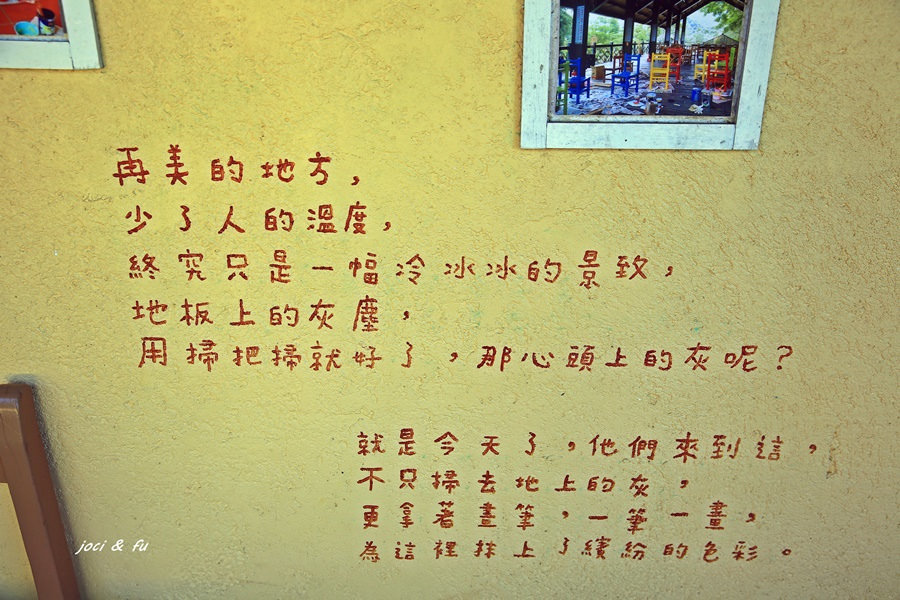 再美的地方，
少了人的溫度，
終究只是一幅冷冰冰的景致，
地板上的灰塵，
用掃把掃就好了，那心頭上的灰呢？
就是今天了，他們來到這，
不只掃去地上的灰，
更拿著畫筆，一筆一畫，
為這裡抹上了繽紛的色彩。
joci & fu